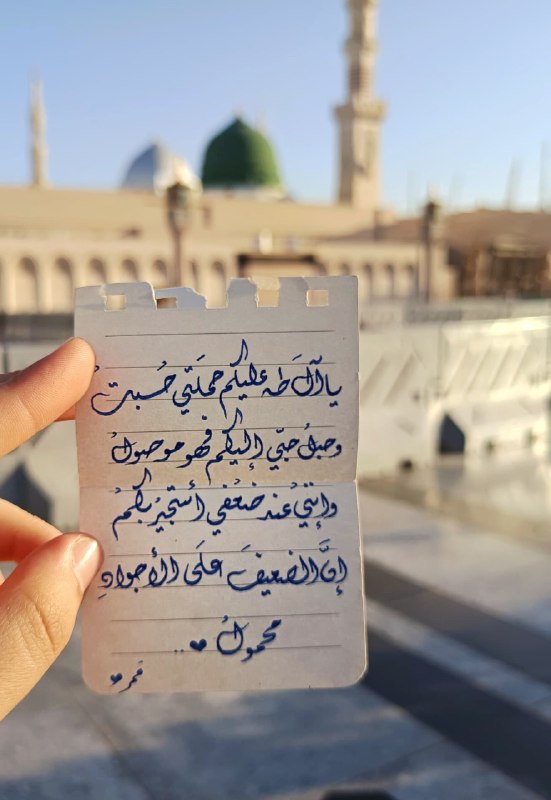 يا آلَ طه عليكم حملَتي حُسبتْ
وحبلُ حبّي إليكم فهو موصولُ
وإنّني عند ضعفي أستجيرُ بكمُ
إنَّ الضعيفَ علَى الأجوادِ
محمولُ ♥..
قمر ♥